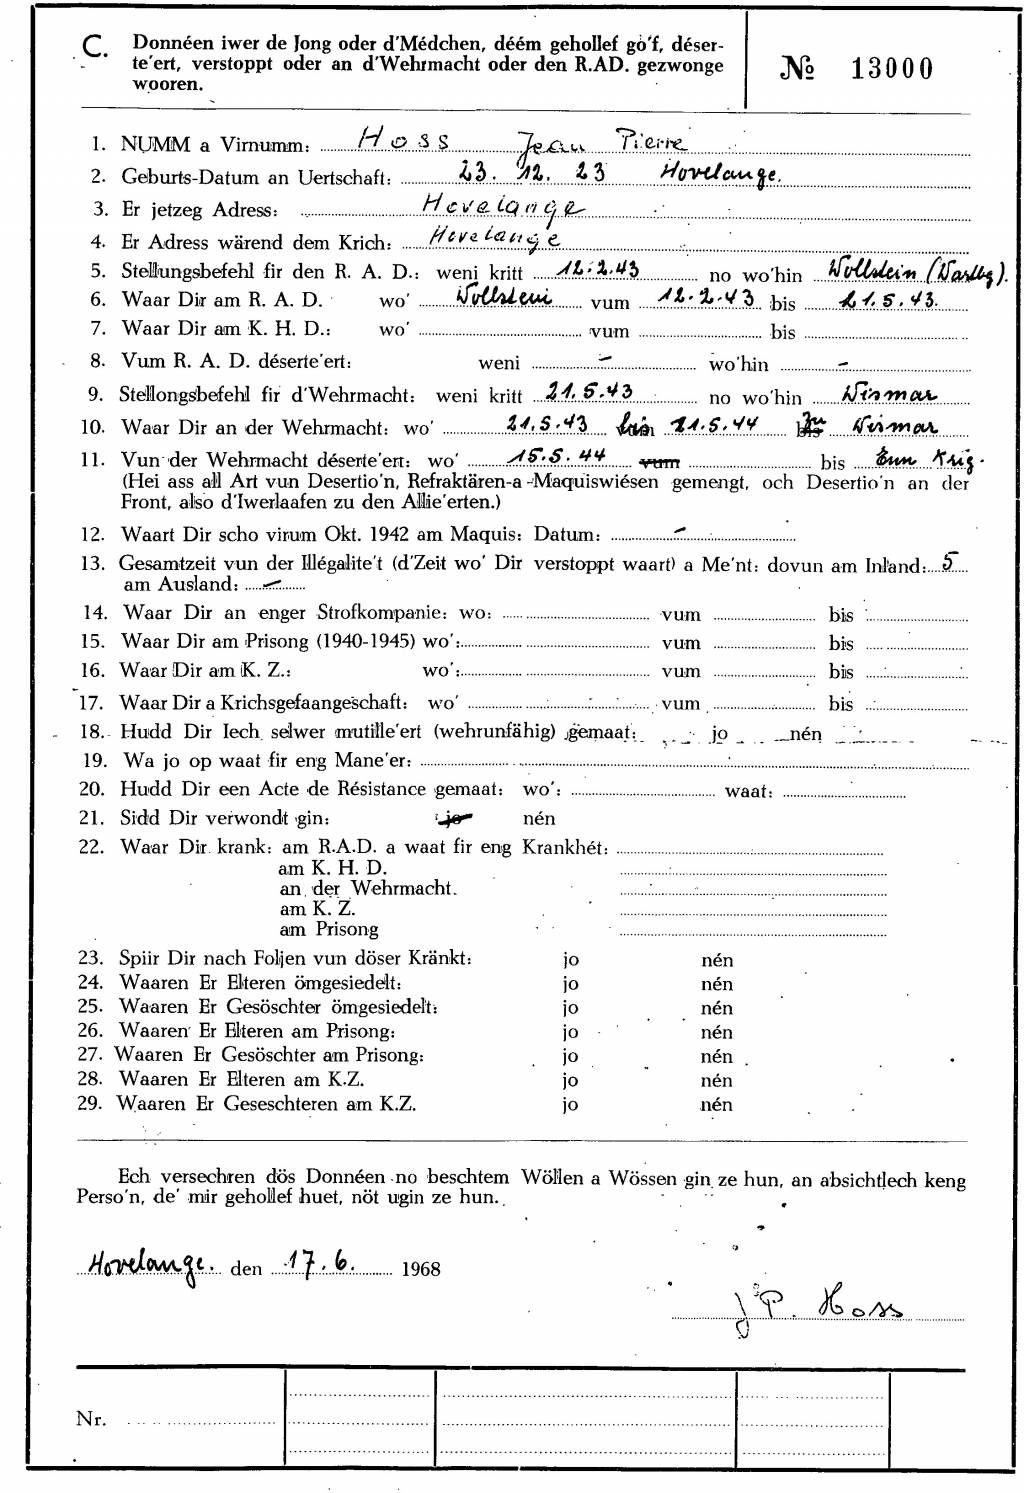 C. Donnéen iwer de Jong oder d'Médchen, déém gehollef go'f, déser-
te'ert, verstoppt oder an d'Wehrmacht oder den R.AD. gezwonge
wooren.
№ 13000
1. NUMM a Virnumm: Hoss Jean Pierre
2. Geburts-Datum an Uertschaft: 23. 12. 23 Hovelange.
3. Er jetzeg Adress: Hovelange
4. Er Adress wärend dem Krich: Hovelange
5. Stellungsbefehl fir den R. A. D.: weni kritt 12.2.43 no wo'hin Wollstein (Warthg).
6. Waar Dir am R. A. D. wo' Wollstein vum 12.2.43 bis 21.5.43.
7. Waar Dir am K. H. D.: wo' vum bis
8. Vum R. A. D. déserte'ert: weni – wo'hin –
9. Stellongsbefehl fir d'Wehrmacht: weni kritt 21.5.43 no wo'hin Wismar
10. Waar Dir an der Wehrmacht: wo' 21.5.43 bis 21.5.44 zu Wismar
11. Vun der Wehrmacht déserte'ert: wo' 15.5.44 vum bis Enn Krig.
(Hei ass all Art vun Desertio'n, Refraktären-a -Maquiswiésen gemengt, och Desertio'n an der
Front, also d'Iwerlaafen zu den Allie'erten.)
12. Waart Dir scho virum Okt. 1942 am Maquis: Datum: –
13. Gesamtzeit vun der Illégalite't (d'Zeit wo' Dir verstoppt waart) a Me'nt: dovun am Inland: 5
am Ausland: –
14. Waar Dir an enger Strofkompanie: wo: vum bis
15. Waar Dir am Prisong (1940-1945) wo': vum bis
16. Waar Dir am K. Z.: wo': vum bis
17. Waar Dir a Krichsgefaangeschaft: wo' vum bis
18. Hudd Dir Iech selwer mutille'ert (wehrunfähig) gemaat: jo nén
19. Wa jo op waat fir eng Mane'er:
20. Hudd Dir een Acte de Résistance gemaat: wo': waat:
21. Sidd Dir verwondt gin: jo nén
22. Waar Dir krank: am R.A.D. a waat fir eng Krankhét:
am K. H. D.
an der Wehrmacht.
am K. Z.
am Prisong
23. Spiir Dir nach Foljen vun döser Kränkt: jo nén
24. Waaren Er Elteren ömgesiedelt: jo nén
25. Waaren Er Gesöschter ömgesiedelt: jo nén
26. Waaren Er Elteren am Prisong: jo nén
27. Waaren Er Gesöschter am Prisong: jo nén
28. Waaren Er Elteren am K.Z. jo nén
29. Waaren Er Geseschteren am K.Z. jo nén
Ech versechren dös Donnéen no beschtem Wöllen a Wössen gin ze hun, an absichtlech keng
Perso'n, de' mir gehollef huet, nöt ugin ze hun.
Hovelange. den 17. 6. 1968
J.P. Hoss
Nr.